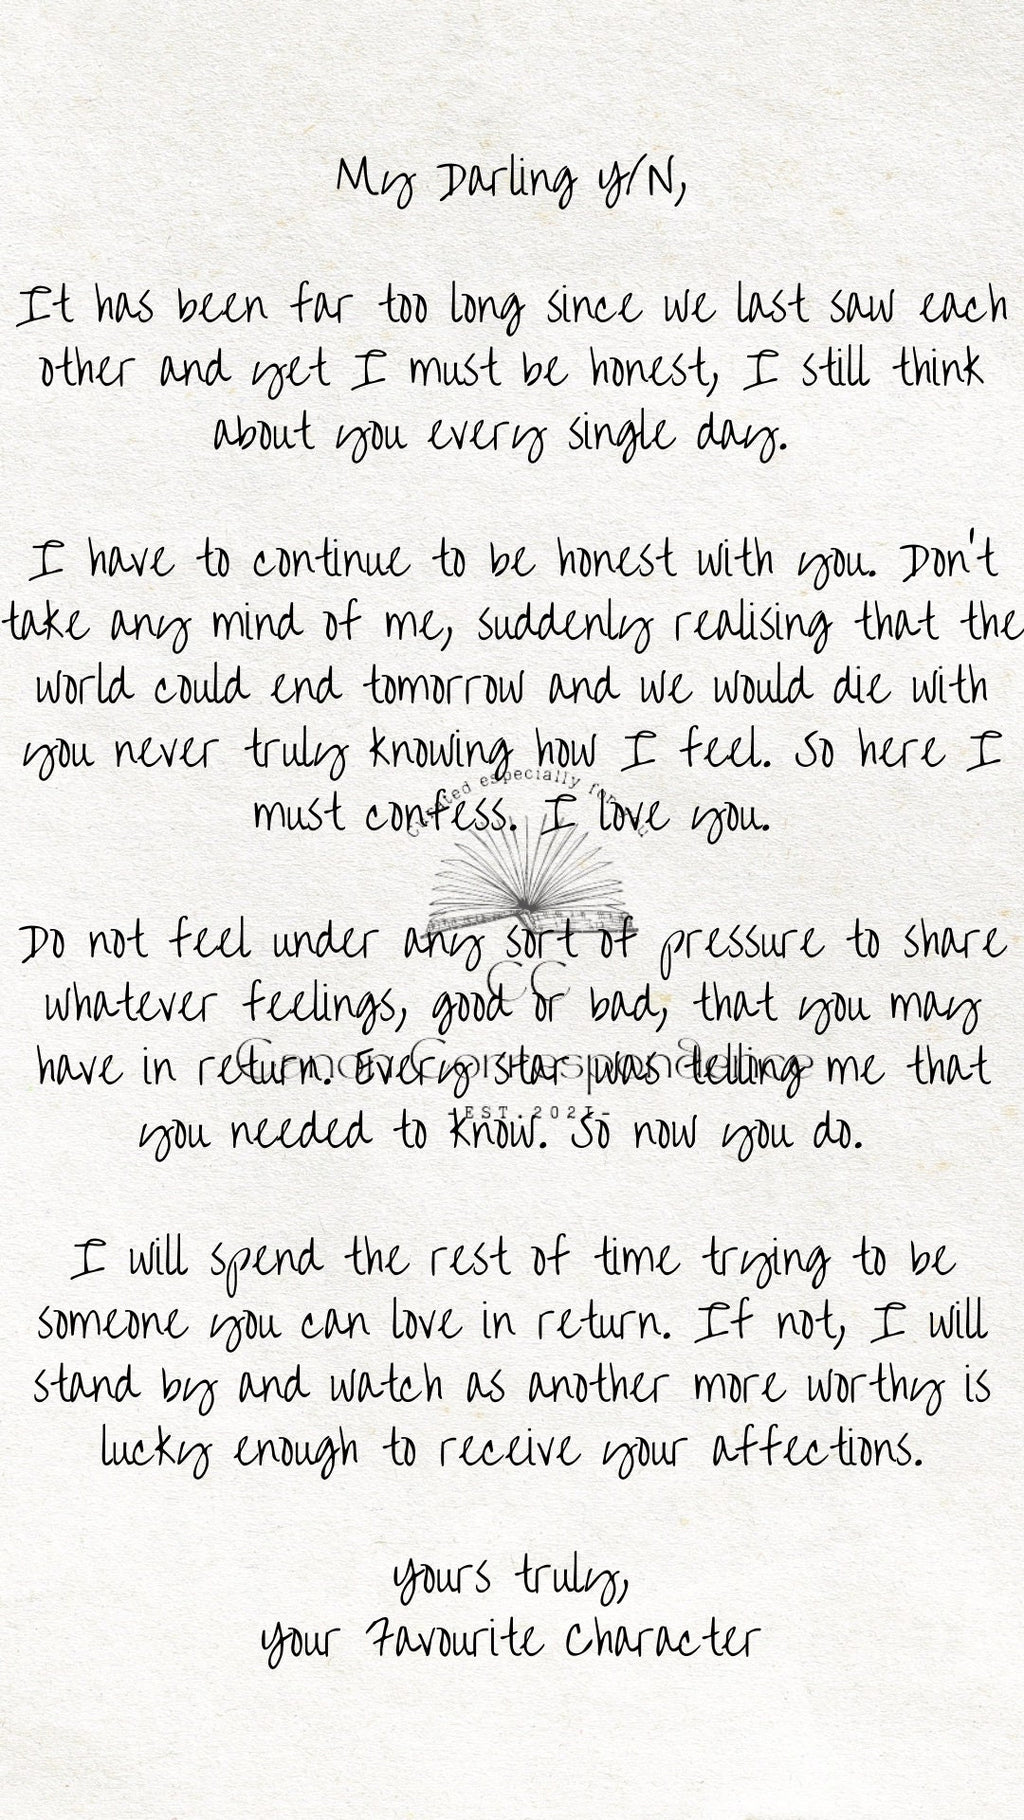 My Darling Y/N,
It has been far too long since we last saw each
other and yet I must be honest, I still think
about you every single day.
I have to continue to be honest with you. Don't
take any mind of me, suddenly realising that the
world could end tomorrow and we would die with
you never truly knowing how I feel. So here I
created especially for
must confess. I love you.
Do not feel under any sort of pressure to share
CC
whatever feelings, good or bad, that you may
have in return. Every star was telling me that
Correspondence
-EST. 2021-
you needed to know. So now you do.
I will spend the rest of time trying to be
someone you can love in return. If not, I will
stand by and watch as another more worthy is
lucky enough to receive your affections.
Yours truly,
Your Favourite Character